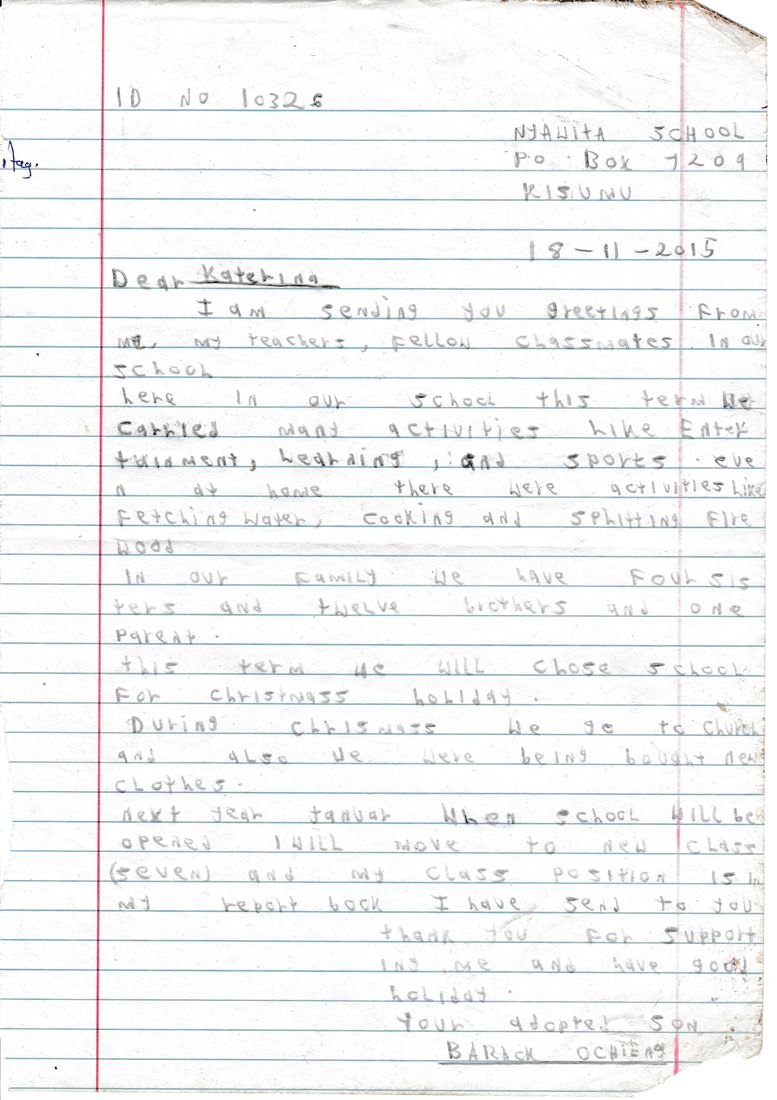 ID NO 10326
NYAWITA SCHOOL
PO. BOX 7209
KISUMU
18-11-2015
Dear Katerina
I am sending you greetings From
me, my teachers, Fellow classmates. In our
school
here in our school this term we
carried many activities like Enter
tainment, Learning, and sports. eve
n at home there were activities Like
Fetching water, cooking and splitting Fire
wood
In our Family we have Four sis
ters and twelve brothers and one
parent.
this term we will chose school
For christmass holiday.
During chrismass we go to church
and also we were being bought new
clothes.
next year Januar When school will be
opened I will move to new class
(seven) and my class position is in
my report book I have send to you
thank you For support
ing me and have good
holiday.
Your adopted SON
BARACK OCHIENG